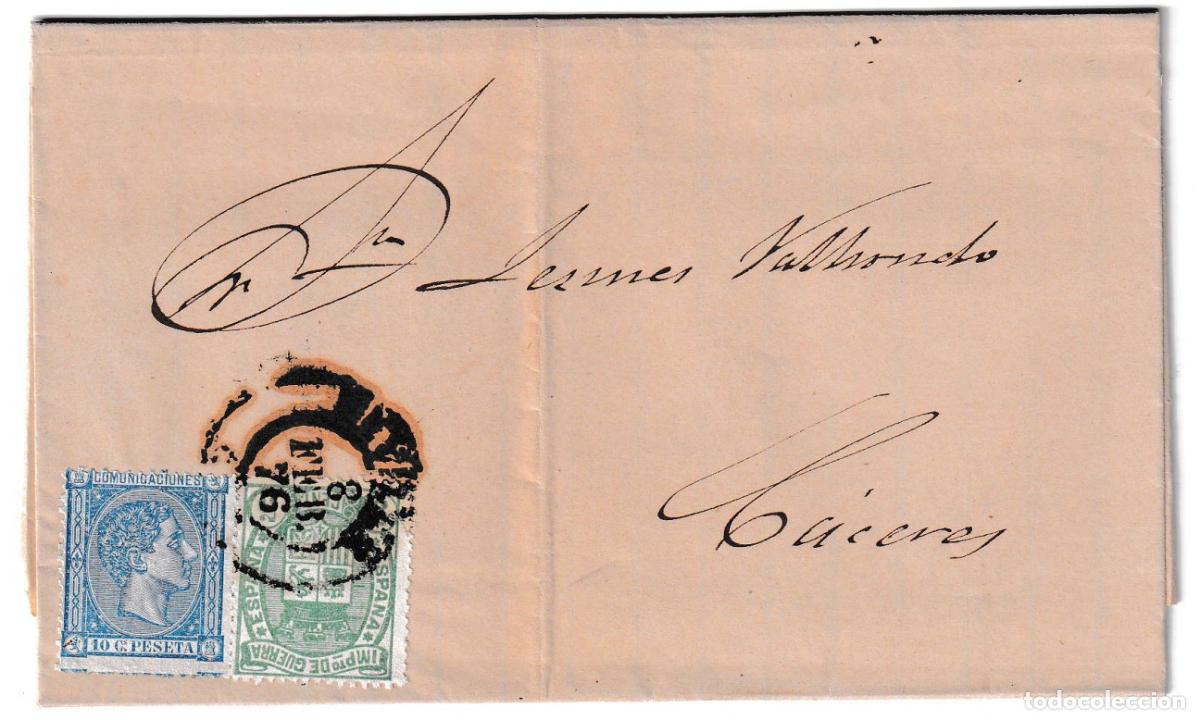 Sr. Dn. Lesmes Valhondo
Cáceres
8
FEB
76
COMUNICACIONES
10 Cs PESETA
ESPAÑA
ESPAÑA
IMPTO DE GUERRA
todocoleccion